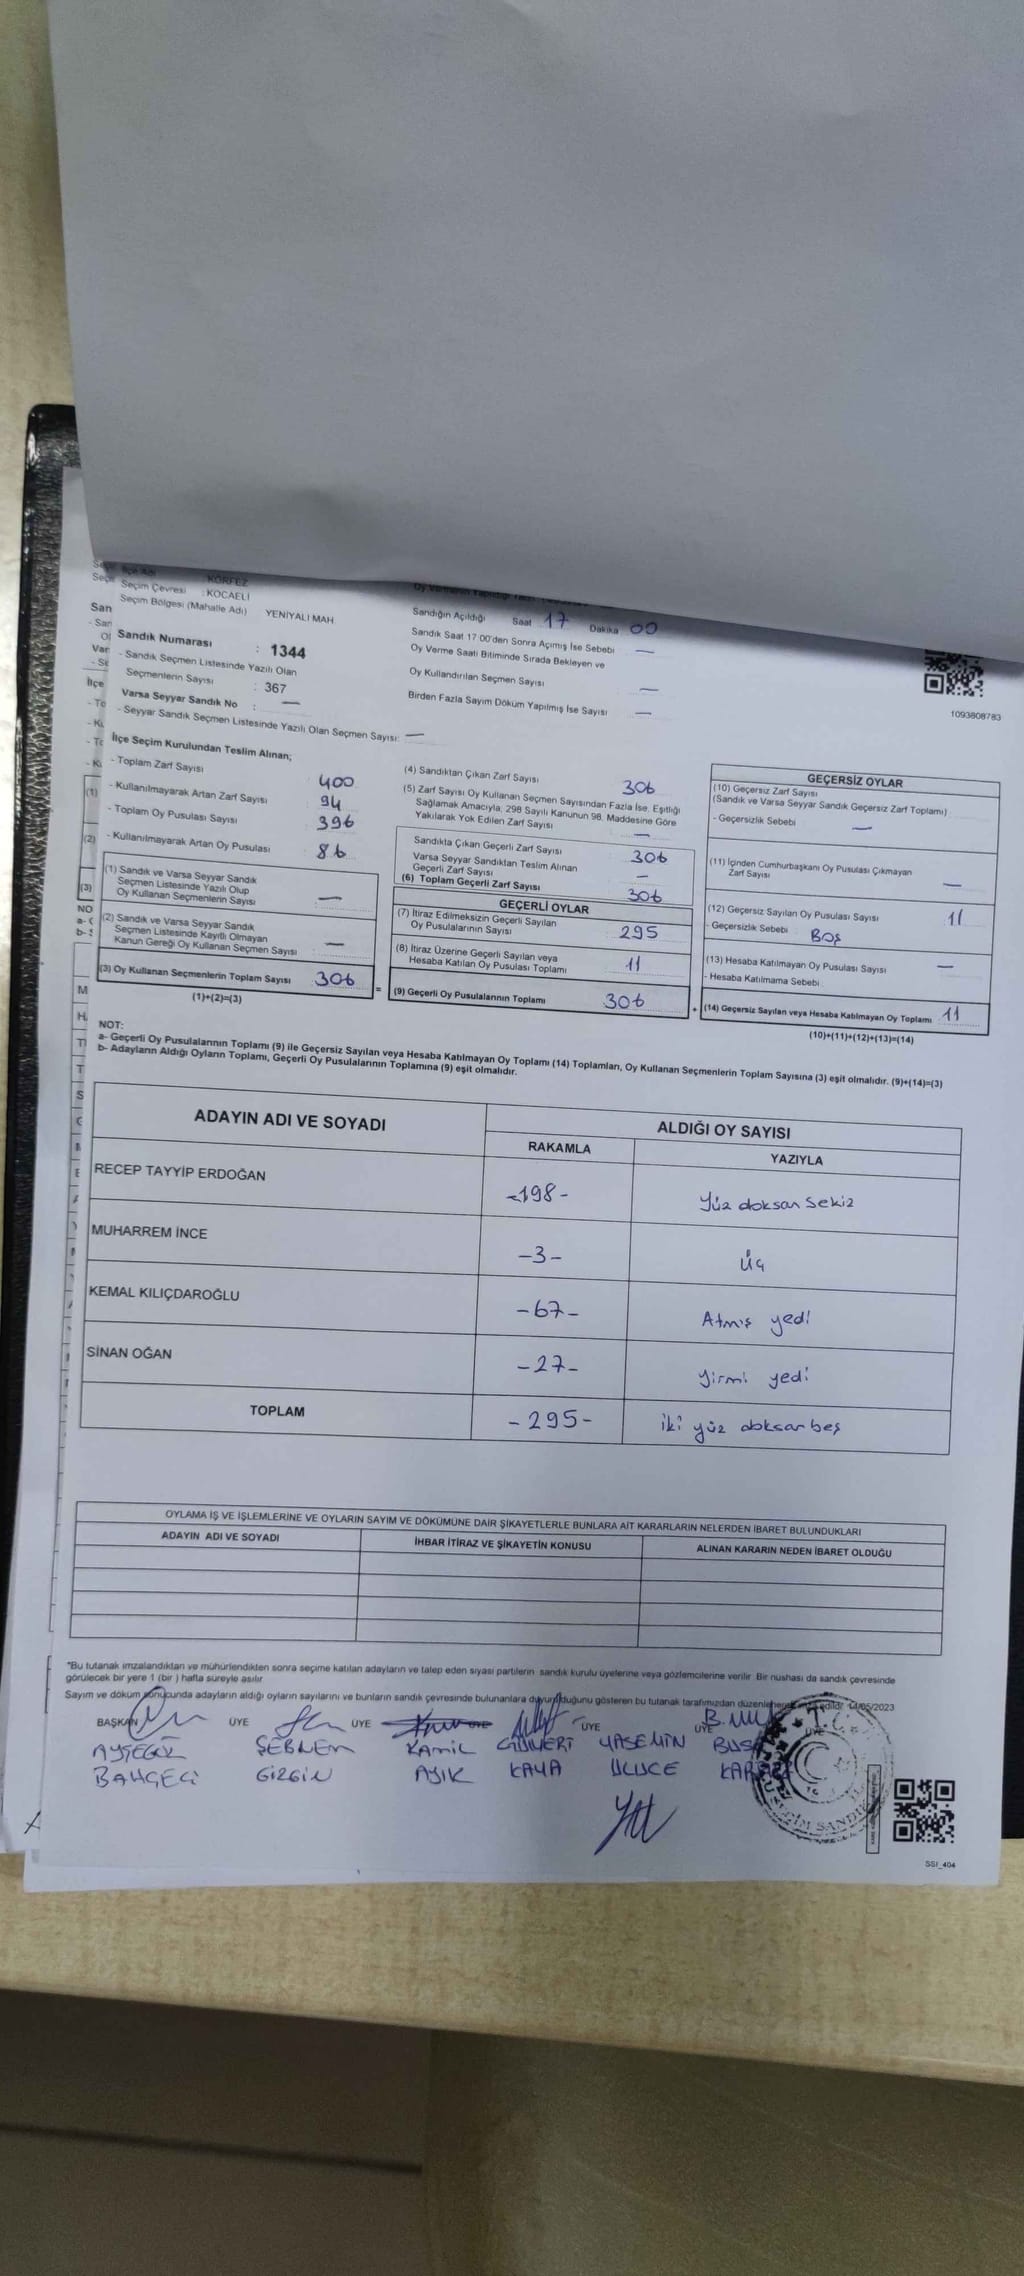 İlçe Adı : KÖRFEZ
Seçim Çevresi : KOCAELİ
Seçim Bölgesi (Mahalle Adı) YENİYALI MAH.
Sandık Numarası : 1344
- Sandık Seçmen Listesinde Yazılı Olan
Seçmenlerin Sayısı : 367
Varsa Seyyar Sandık No : —
- Seyyar Sandık Seçmen Listesinde Yazılı Olan Seçmen Sayısı: —
Sandığın Açıldığı Saat 17 Dakika 00
Sandık Saat 17.00'den Sonra Açımış İse Sebebi —
Oy Verme Saati Bitiminde Sırada Bekleyen ve
Oy Kullandırılan Seçmen Sayısı —
Birden Fazla Sayım Döküm Yapılmış İse Sayısı —
1093808783
İlçe Seçim Kurulundan Teslim Alınan;
- Toplam Zarf Sayısı 400
- Kullanılmayarak Artan Zarf Sayısı 94
- Toplam Oy Pusulası Sayısı 396
- Kullanılmayarak Artan Oy Pusulası 86
(1) Sandık ve Varsa Seyyar Sandık
Seçmen Listesinde Yazılı Olup
Oy Kullanan Seçmenlerin Sayısı : —
(2) Sandık ve Varsa Seyyar Sandık
Seçmen Listesinde Kayıtlı Olmayan
Kanun Gereği Oy Kullanan Seçmen Sayısı : —
(3) Oy Kullanan Seçmenlerin Toplam Sayısı 306
(1)+(2)=(3)
(4) Sandıktan Çıkan Zarf Sayısı 306
(5) Zarf Sayısı Oy Kullanan Seçmen Sayısından Fazla İse, Eşitliği
Sağlamak Amacıyla, 298 Sayılı Kanunun 98. Maddesine Göre
Yakılarak Yok Edilen Zarf Sayısı —
Sandıkta Çıkan Geçerli Zarf Sayısı 306
Varsa Seyyar Sandıktan Teslim Alınan
Geçerli Zarf Sayısı —
(6) Toplam Geçerli Zarf Sayısı 306
GEÇERLİ OYLAR
(7) İtiraz Edilmeksizin Geçerli Sayılan
Oy Pusulalarının Sayısı 295
(8) İtiraz Üzerine Geçerli Sayılan veya
Hesaba Katılan Oy Pusulası Toplamı 11
(9) Geçerli Oy Pusulalarının Toplamı 306
GEÇERSİZ OYLAR
(10) Geçersiz Zarf Sayısı
(Sandık ve Varsa Seyyar Sandık Geçersiz Zarf Toplamı)
- Geçersizlik Sebebi —
(11) İçinden Cumhurbaşkanı Oy Pusulası Çıkmayan
Zarf Sayısı —
(12) Geçersiz Sayılan Oy Pusulası Sayısı 11
- Geçersizlik Sebebi Boş
(13) Hesaba Katılmayan Oy Pusulası Sayısı —
- Hesaba Katılmama Sebebi
(14) Geçersiz Sayılan veya Hesaba Katılmayan Oy Toplamı 11
(10)+(11)+(12)+(13)=(14)
NOT:
a- Geçerli Oy Pusulalarının Toplamı (9) ile Geçersiz Sayılan veya Hesaba Katılmayan Oy Toplamı (14) Toplamları, Oy Kullanan Seçmenlerin Toplam Sayısına (3) eşit olmalıdır. (9)+(14)=(3)
b- Adayların Aldığı Oyların Toplamı, Geçerli Oy Pusulalarının Toplamına (9) eşit olmalıdır.
ADAYIN ADI VE SOYADI
ALDIĞI OY SAYISI
RAKAMLA YAZIYLA
RECEP TAYYİP ERDOĞAN -198- Yüz doksan sekiz
MUHARREM İNCE -3- Üç
KEMAL KILIÇDAROĞLU -67- Atmış yedi
SİNAN OĞAN -27- yirmi yedi
TOPLAM -295- iki yüz doksan beş
OYLAMA İŞ VE İŞLEMLERİNE VE OYLARIN SAYIM VE DÖKÜMÜNE DAİR ŞİKAYETLERLE BUNLARA AİT KARARLARIN NELERDEN İBARET BULUNDUKLARI
ADAYIN ADI VE SOYADI İHBAR İTİRAZ VE ŞİKAYETİN KONUSU ALINAN KARARIN NEDEN İBARET OLDUĞU
*Bu tutanak imzalandıktan ve mühürlendikten sonra seçime katılan adayların ve talep eden siyasi partilerin sandık kurulu üyelerine veya gözlemcilerine verilir. Bir nushası da sandık çevresinde
görülecek bir yere 1 (bir) hafta süreyle asılır.
Sayım ve döküm sonucunda adayların aldığı oyların sayılarını ve bunların sandık çevresinde bulunanlara duyurulduğunu gösteren bu tutanak tarafımızdan
BAŞKAN ÜYE ÜYE ÜYE ÜYE
AYŞEGÜL ŞEBNEM KAMİL YASEMİN
BAHÇECİ GİZGİN AYIK KAYA ULUCE
SSI_404